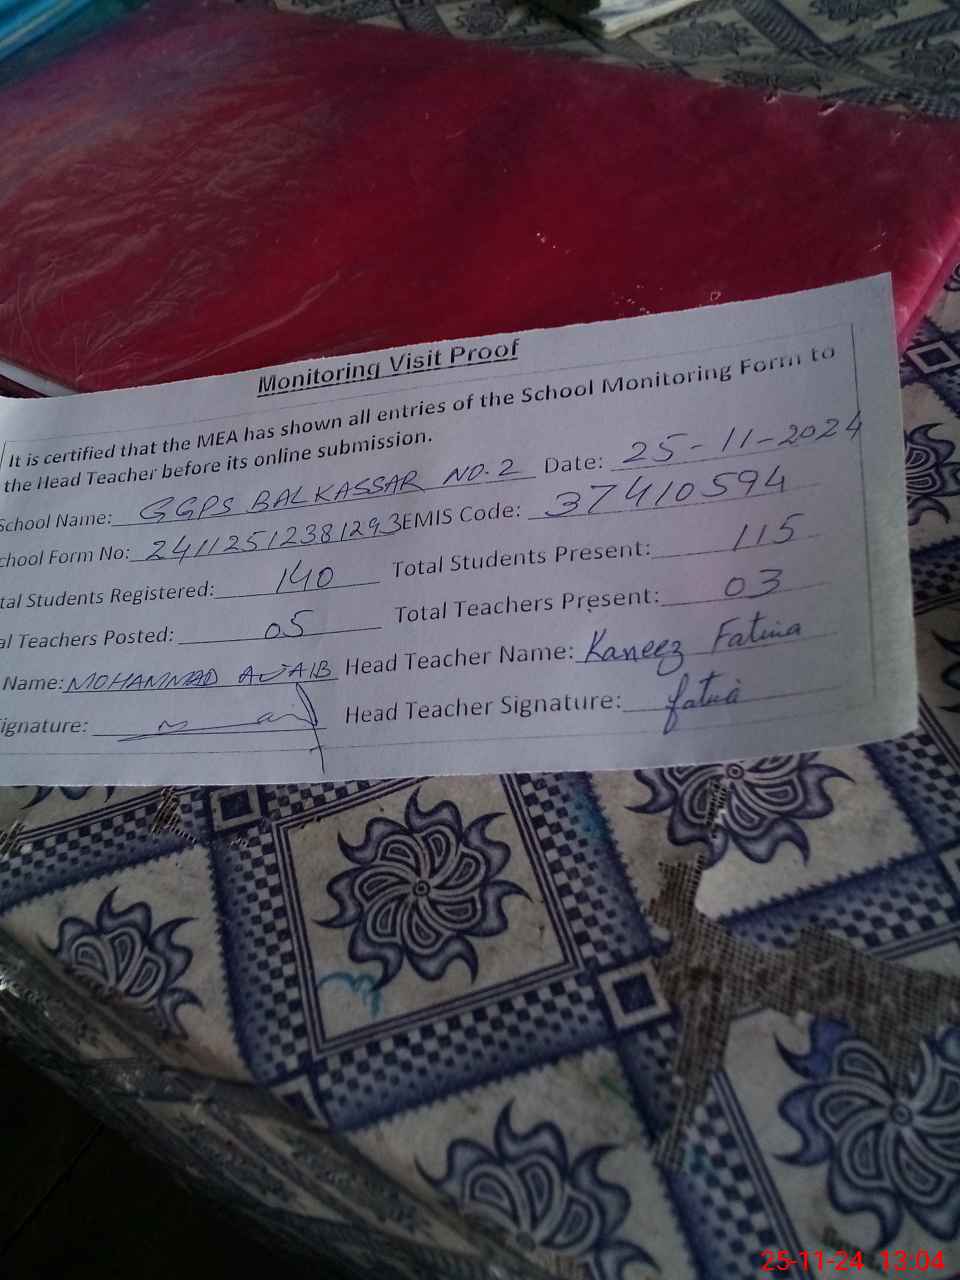 Monitoring Visit Proof
It is certified that the MEA has shown all entries of the School Monitoring Form to
the Head Teacher before its online submission.
School Name: GGPS BALKASSAR NO.2 Date: 25-11-2024
chool Form No: 24112512381293 EMIS Code: 37410594
tal Students Registered: 140 Total Students Present: 115
al Teachers Posted: 05 Total Teachers Present: 03
Name: MOHAMMAD AJAIB Head Teacher Name: Kaneez Fatima
ignature: Head Teacher Signature: fatima
25-11-24 13:04